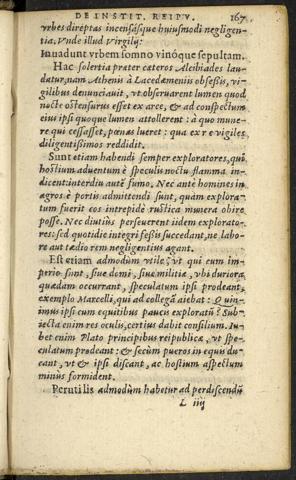 DE INSTIT. REIPV. 167
vrbes direptas incensásque huiusmodi negligen
tia. Vnde illud Virgilij:
Inuadunt vrbem somno vinóque sepultam.
Hac solertia præter cæteros Alcibiades lau
datur, nam Athenis à Lacedæmoniis obsessis, vi
gilibus denunciauit, vt obseruarent lumen quod
nocte ostensurus esset ex arce, & ad conspectum
eius ipsi quoque lumen attollerent: à quo mune
re qui cessasset, pœnas lueret: qua ex re vigiles
diligentissimos reddidit.
Sunt etiam habendi semper exploratores, qui
hostium aduentum è speculis noctu flamma in
dicent: interdiu autē fumo. Nec ante homines in
agros è portis admittendi sunt, quàm explora-
tum fuerit eos intrepidè rustica munera obire
posse. Nec diutiùs perseuerent iidem explorato-
res: sed quotidie integri fessis succedant, ne labo-
re aut tædio rem negligentius agant.
Est etiam admodùm vtile, vt qui cum im-
perio sunt, siue domi, siue militiæ, vbi duriora
quædam occurrant, speculatum ipsi prodeant,
exemplo Marcelli, qui ad collegā aiebat: Quin
imus ipsi cum equitibus paucis exploratū? Sub-
iecta enim res oculis, certius dabit consilium. Iu-
bet enim Plato principibus reipublicæ, vt spe-
culatum prodeant: & secùm pueros in equis du
cant, vt & ipsi discant, ac hostium aspectum
minùs formident.
Perutilis admodùm habetur ad perdiscendū
L iiij